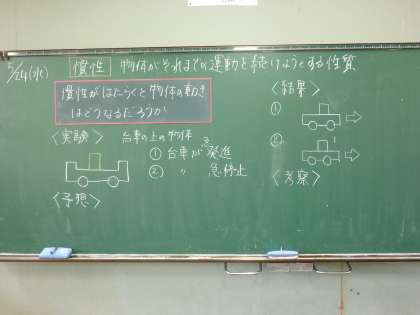 2/24(水)
慣性 物体がそれまでの運動を続けようとする性質
慣性がはたらくと物体の動き
はどうなるだろうか
〈実験〉 台車の上の物体
① 台車が急発進
② 〃 急停止
〈予想〉
〈結果〉
①
②
〈考察〉